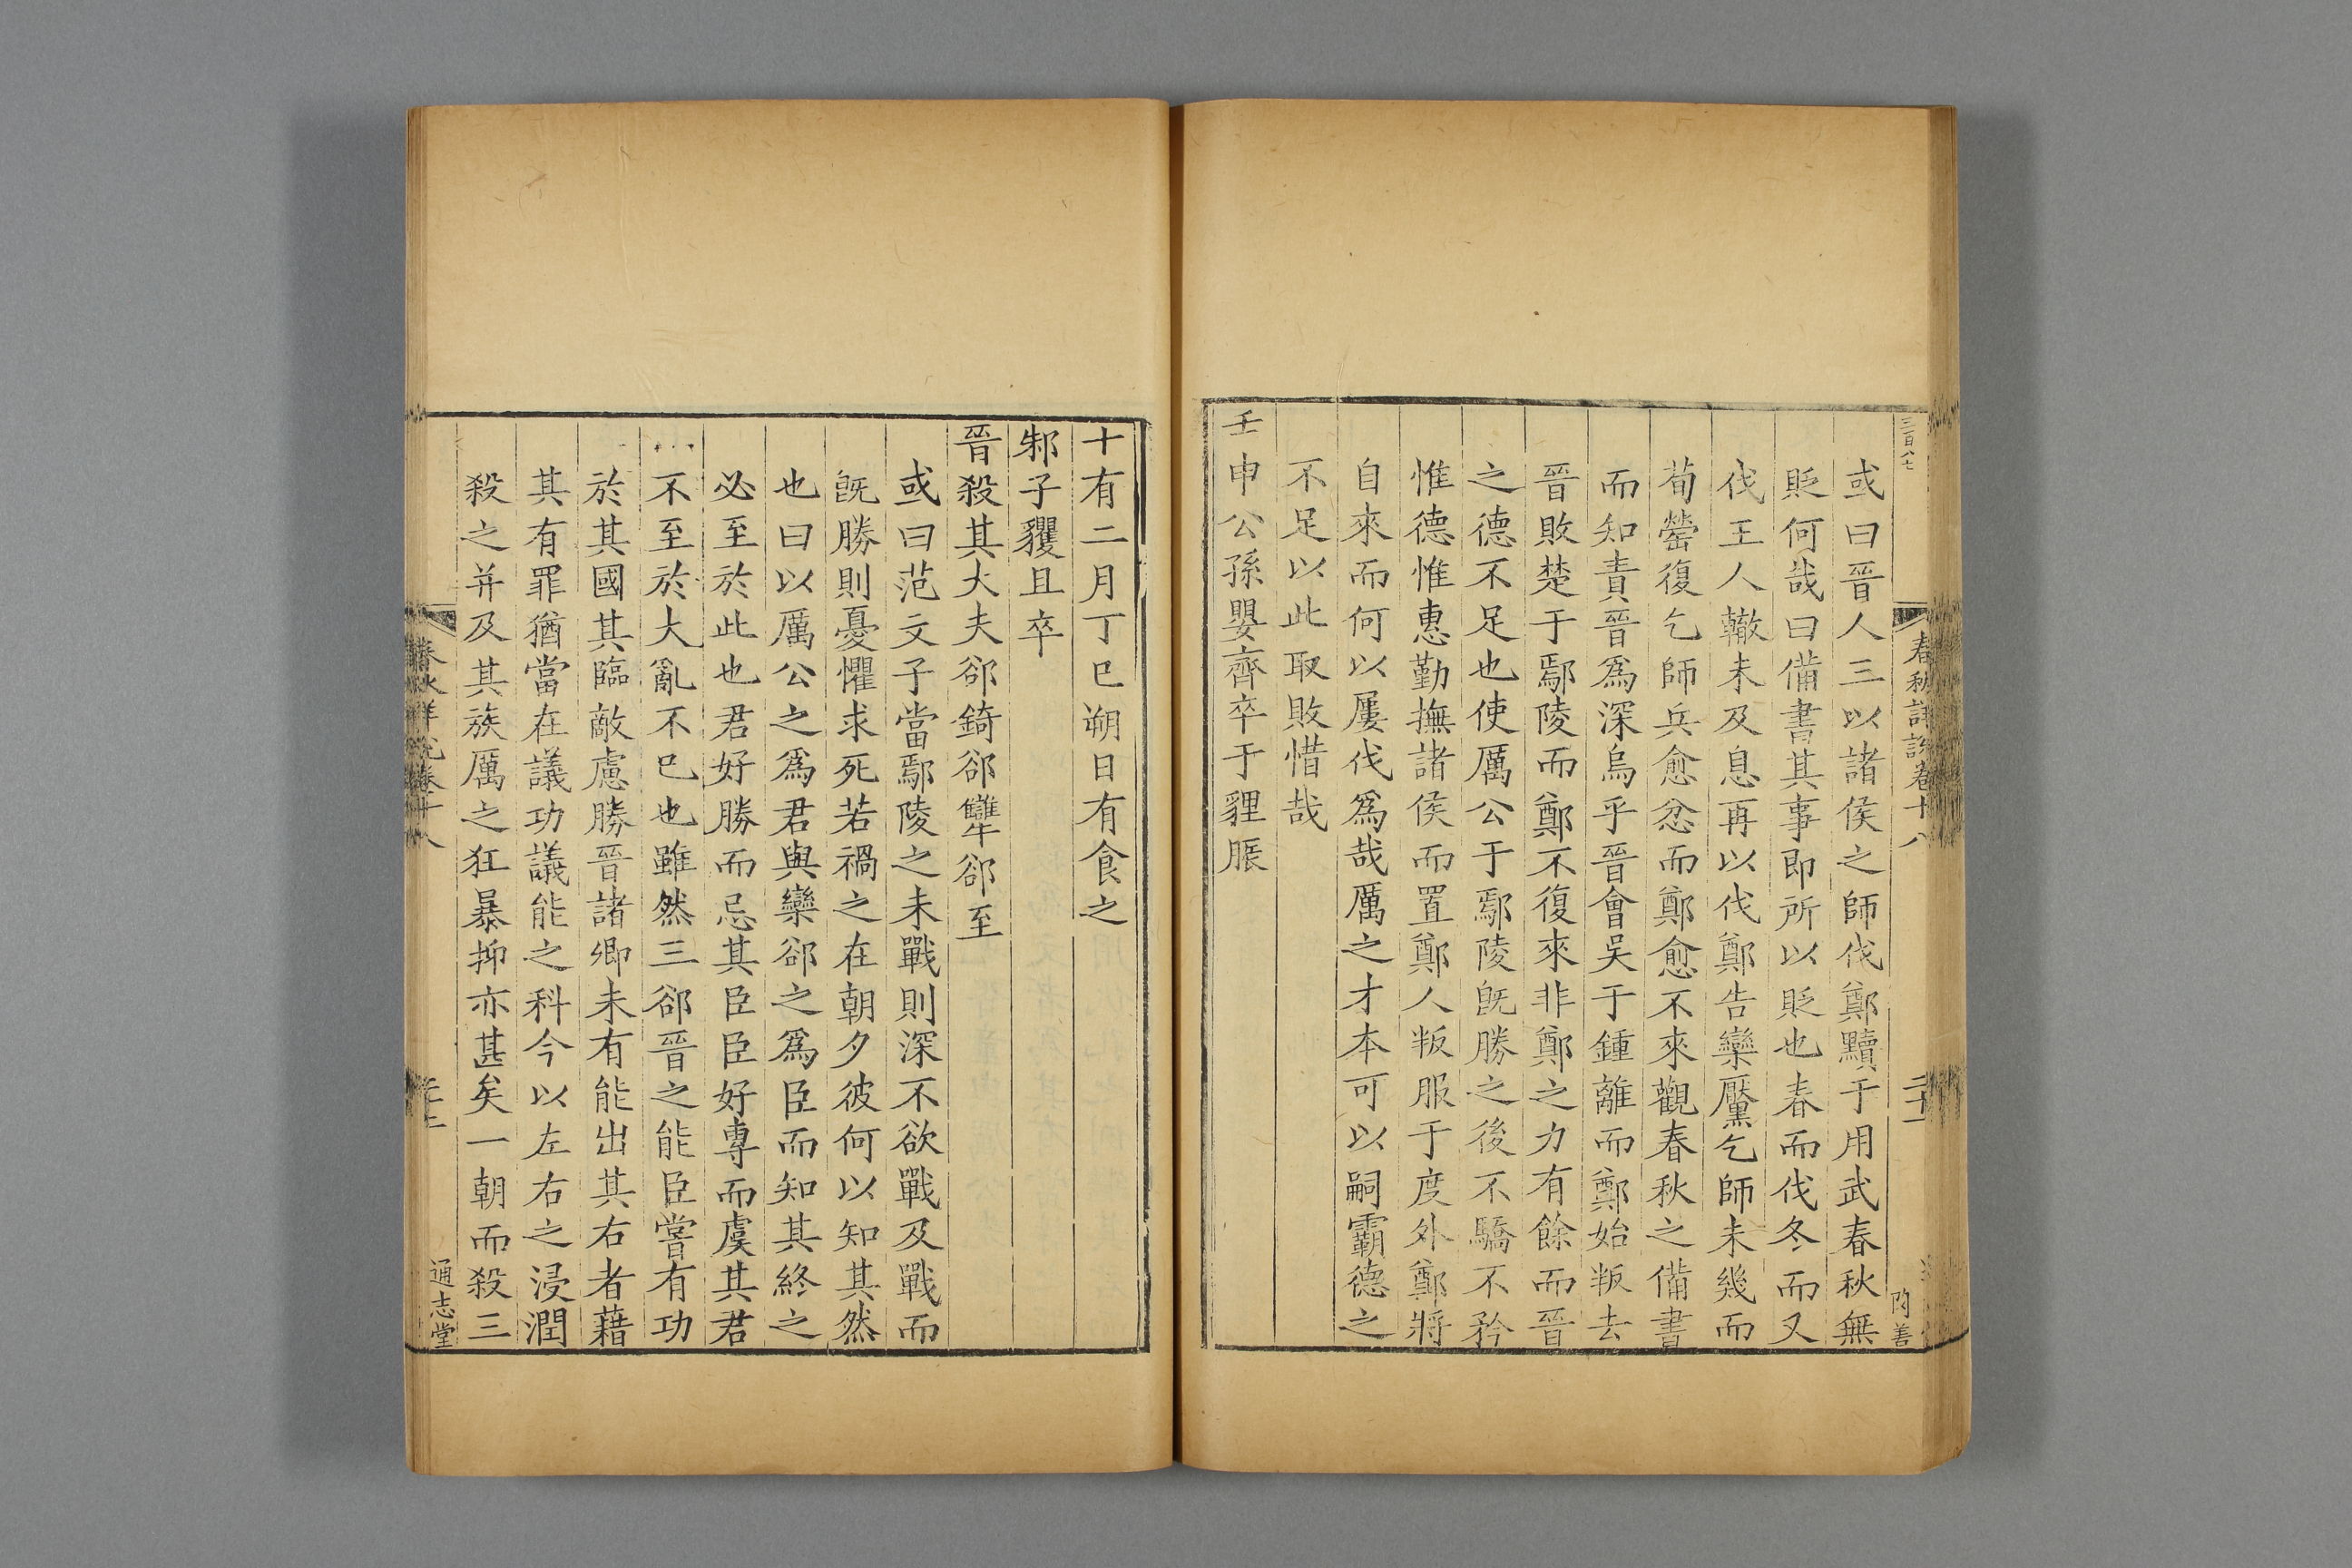 三百八七
春秋詳說卷十八
二十一
或曰晉人三以諸侯之師伐鄭黷于用武春秋無
貶何哉曰備書其事即所以貶也春而伐冬而又
伐王人轍未及息再以伐鄭告欒黶乞師未幾而
荀罃復乞師兵愈忿而鄭愈不來觀春秋之備書
而知責晉爲深烏乎晉會吳于鍾離而鄭始叛去
晉敗楚于鄢陵而鄭不復來非鄭之力有餘而晉
之德不足也使厲公于鄢陵旣勝之後不驕不矜
惟德惟惠勤撫諸侯而置鄭人叛服于度外鄭將
自來而何以屢伐爲哉厲之才本可以嗣霸德之
不足以此取敗惜哉
壬申公孫嬰齊卒于貍脤
十有二月丁巳朔日有食之
邾子貜且卒
晉殺其大夫郤錡郤犫郤至
或曰范文子當鄢陵之未戰則深不欲戰及戰而
旣勝則憂懼求死若禍之在朝夕彼何以知其然
也曰以厲公之爲君與欒郤之爲臣而知其終之
必至於此也君好勝而忌其臣臣好專而虞其君
不至於大亂不巳也雖然三郤晉之能臣嘗有功
於其國其臨敵慮勝晉諸卿未有能出其右者藉
其有罪猶當在議功議能之科今以左右之浸潤
殺之并及其族厲之狂暴抑亦甚矣一朝而殺三
春秋詳說卷十八
通志堂